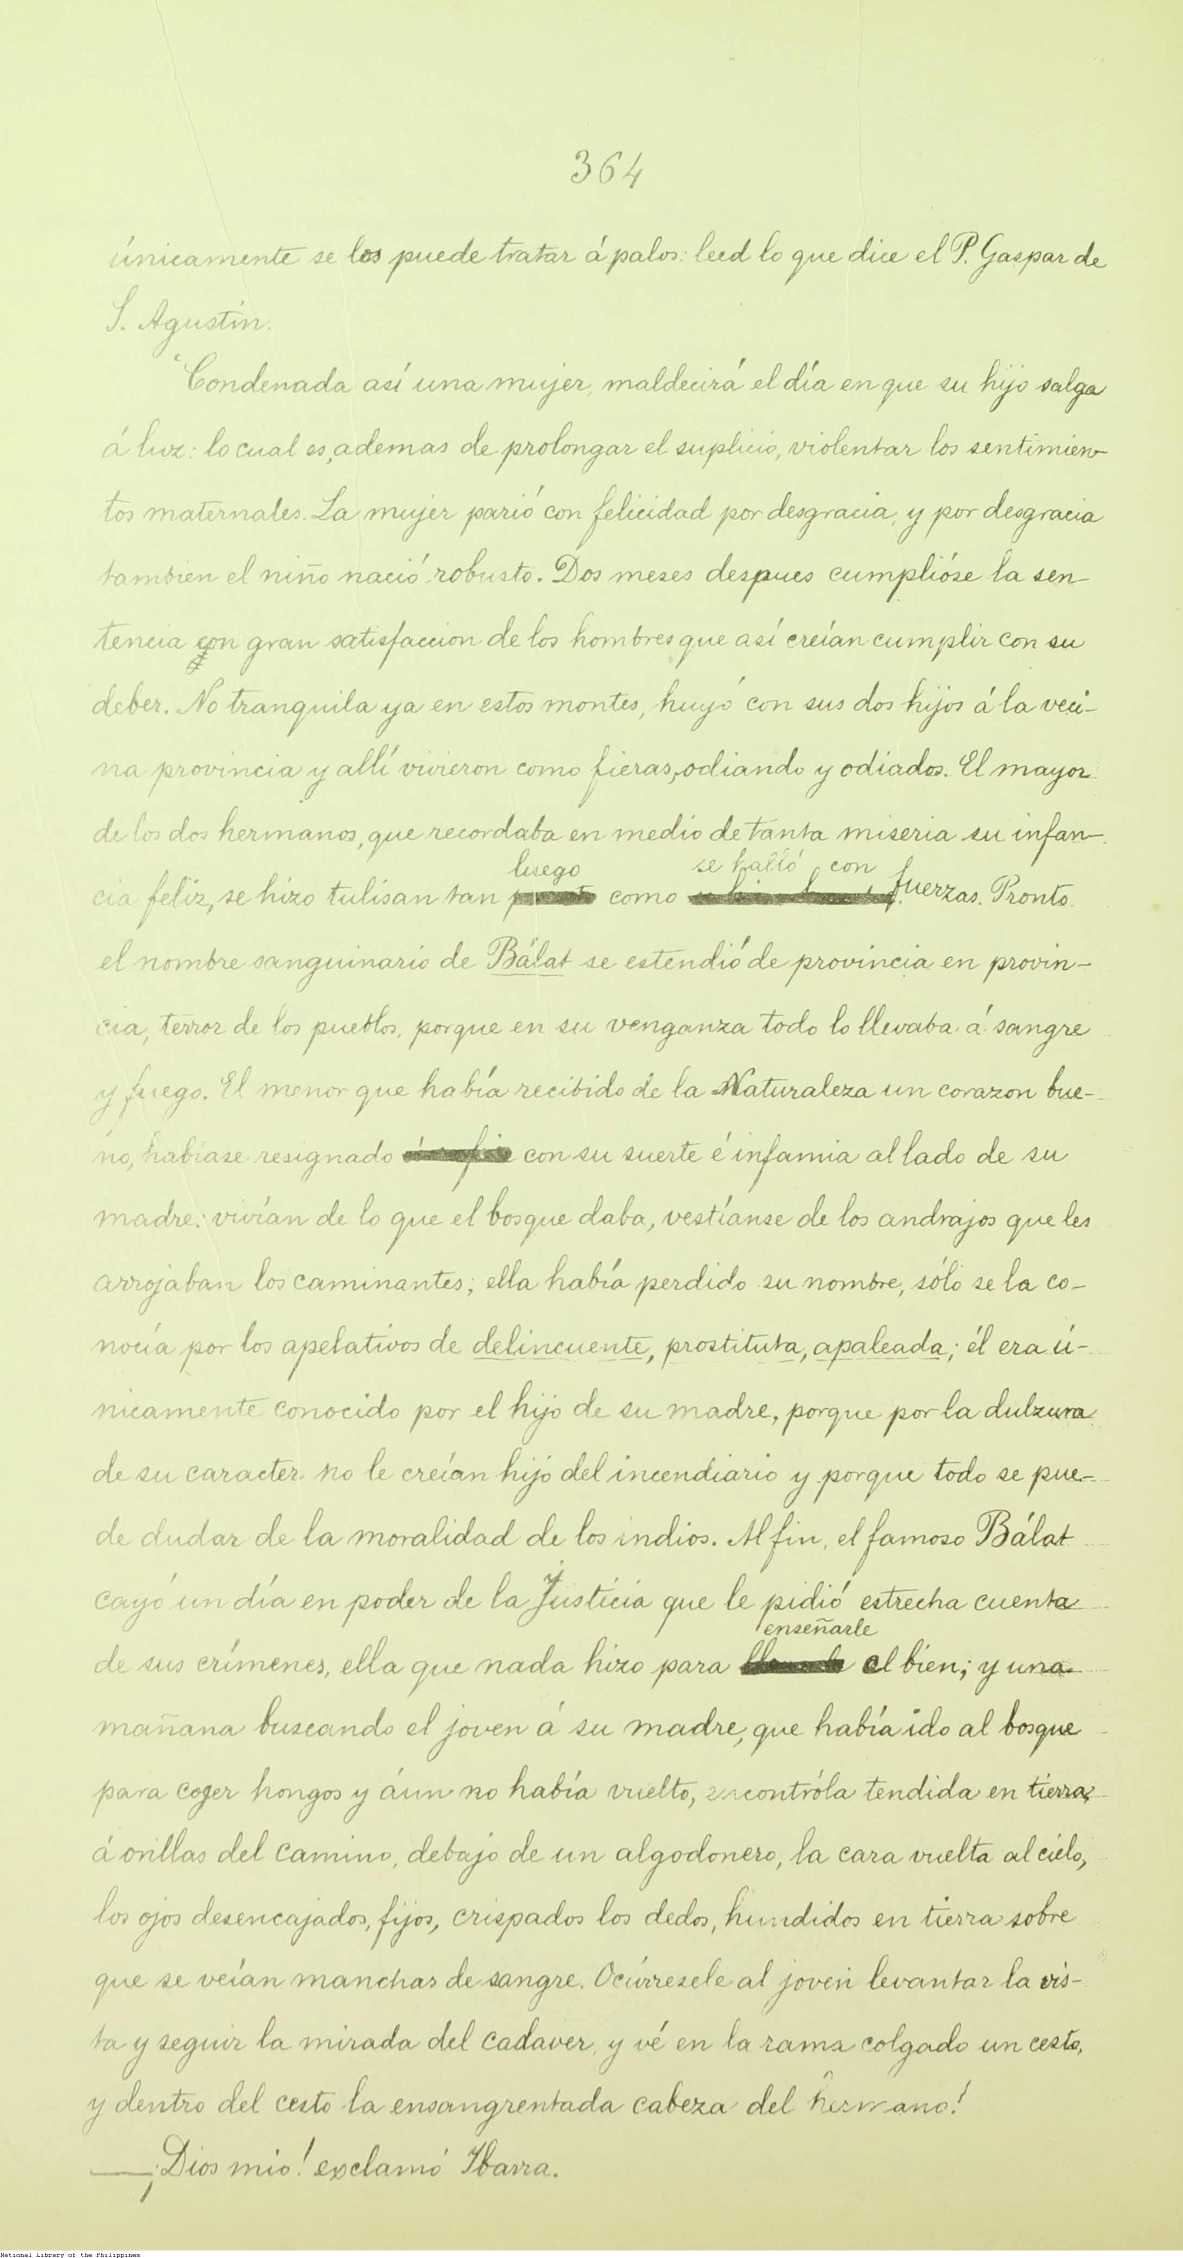 364
únicamente se los puede tratar á palos: leed lo que dice el P. Gaspar de
S. Agustin.
"Condenada así una mujer, maldecirá el día en que su hijo salga
á luz: lo cual es, ademas de prolongar el suplicio, violentar los sentimien-
tos maternales. La mujer parió con felicidad por desgracia, y por desgracia
tambien el niño nació robusto. Dos meses despues cumplióse la sen-
tencia con gran satisfaccion de los hombres que así creían cumplir con su
deber. No tranquila ya en estos montes, huyó con sus dos hijos á la veci-
na provincia y allí vivieron como fieras, odiando y odiados. El mayor
de los dos hermanos, que recordaba en medio de tanta miseria su infan-
luego se halló con
cia feliz, se hizo tulisan tan como fuerzas. Pronto
el nombre sanguinario de Bálat se estendió de provincia en provin-
cia, terror de los pueblos, porque en su venganza todo lo llevaba á sangre
y fuego. El menor que había recibido de la Naturaleza un corazon bue-
no, habíase resignado con su suerte é infamia al lado de su
madre: vivían de lo que el bosque daba, vestíanse de los andrajos que les
arrojaban los caminantes; ella había perdido su nombre, sólo se la co-
nocía por los apelativos de delincuente, prostituta, apaleada; él era ú-
nicamente conocido por el hijo de su madre, porque por la dulzura
de su caracter no le creían hijo del incendiario y porque todo se pue-
de dudar de la moralidad de los indios. Al fin, el famoso Bálat
cayó un día en poder de la Justicia que le pidió estrecha cuenta
enseñarle
de sus crímenes, ella que nada hizo para el bien; y una
mañana buscando el joven á su madre, que había ido al bosque
para coger hongos y áun no había vuelto, encontróla tendida en tierra,
á orillas del camino, debajo de un algodonero, la cara vuelta al cielo,
los ojos desencajados, fijos, crispados los dedos, hundidos en tierra sobre
que se veían manchas de sangre. Ocúrresele al joven levantar la vis-
ta y seguir la mirada del cadaver, y vé en la rama colgado un cesto,
y dentro del cesto la ensangrentada cabeza del hermano!
—¡Dios mio! exclamó Ibarra.
National Library of the Philippines